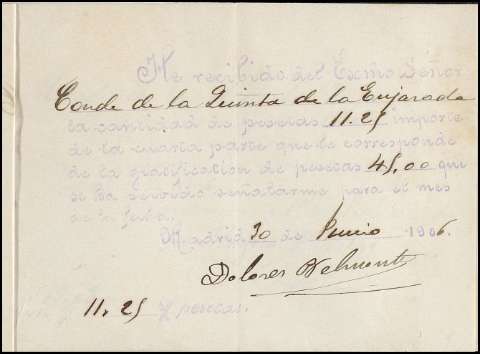 He recibido del Exmo Señor
Conde de la Quinta de la Enjarada
la cantidad de pesetas 11.25 importe
de la cuarta parte que le corresponde
de la gratificación de pesetas 45,00 que
se ha servido señalarme para el mes
de la fecha.
Madrid 30 de Junio 1906.
Dolores Belmonte
11.25 pesetas.